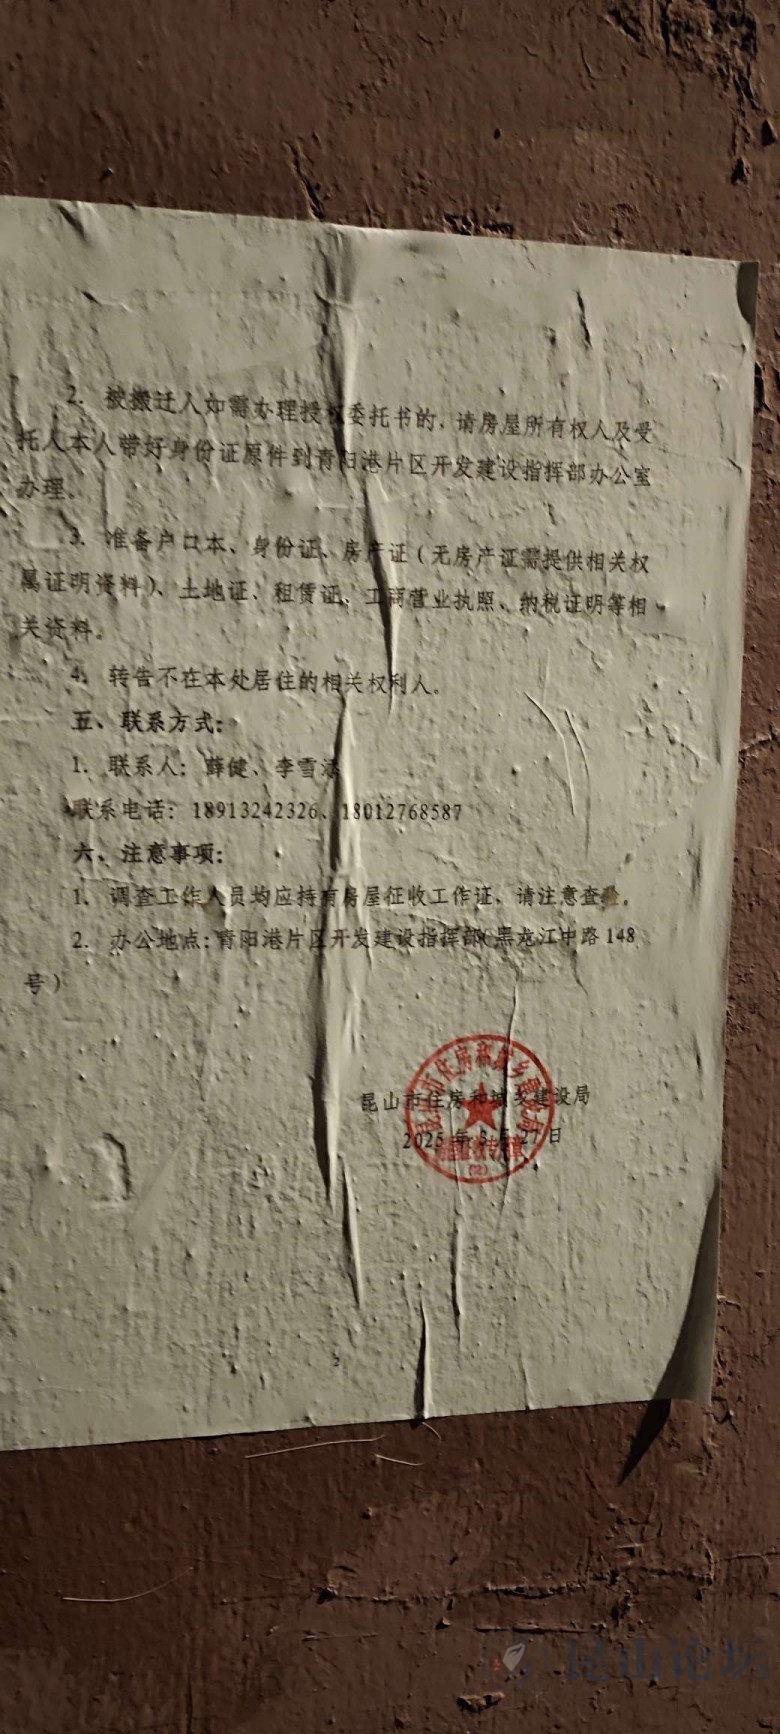 2. 被搬迁人如需办理授权委托书的，请房屋所有权人及受
托人本人带好身份证原件到青阳港片区开发建设指挥部办公室
办理。
3. 准备户口本、身份证、房产证（无房产证需提供相关权
属证明资料）、土地证、租赁证、工商营业执照、纳税证明等相
关资料。
4. 转告不在本处居住的相关权利人。
五、联系方式：
1. 联系人：薛健、李雪
联系电话：18913242326、18012768587
六、注意事项：
1. 调查工作人员均应持有房屋征收工作证，请注意查验。
2. 办公地点：青阳港片区开发建设指挥部（黑龙江中路148
号）
昆山市住房和城乡建设局
2025年3月27日
昆山市住房和城乡建设局
房屋征收专用章
(2)
昆山论坛